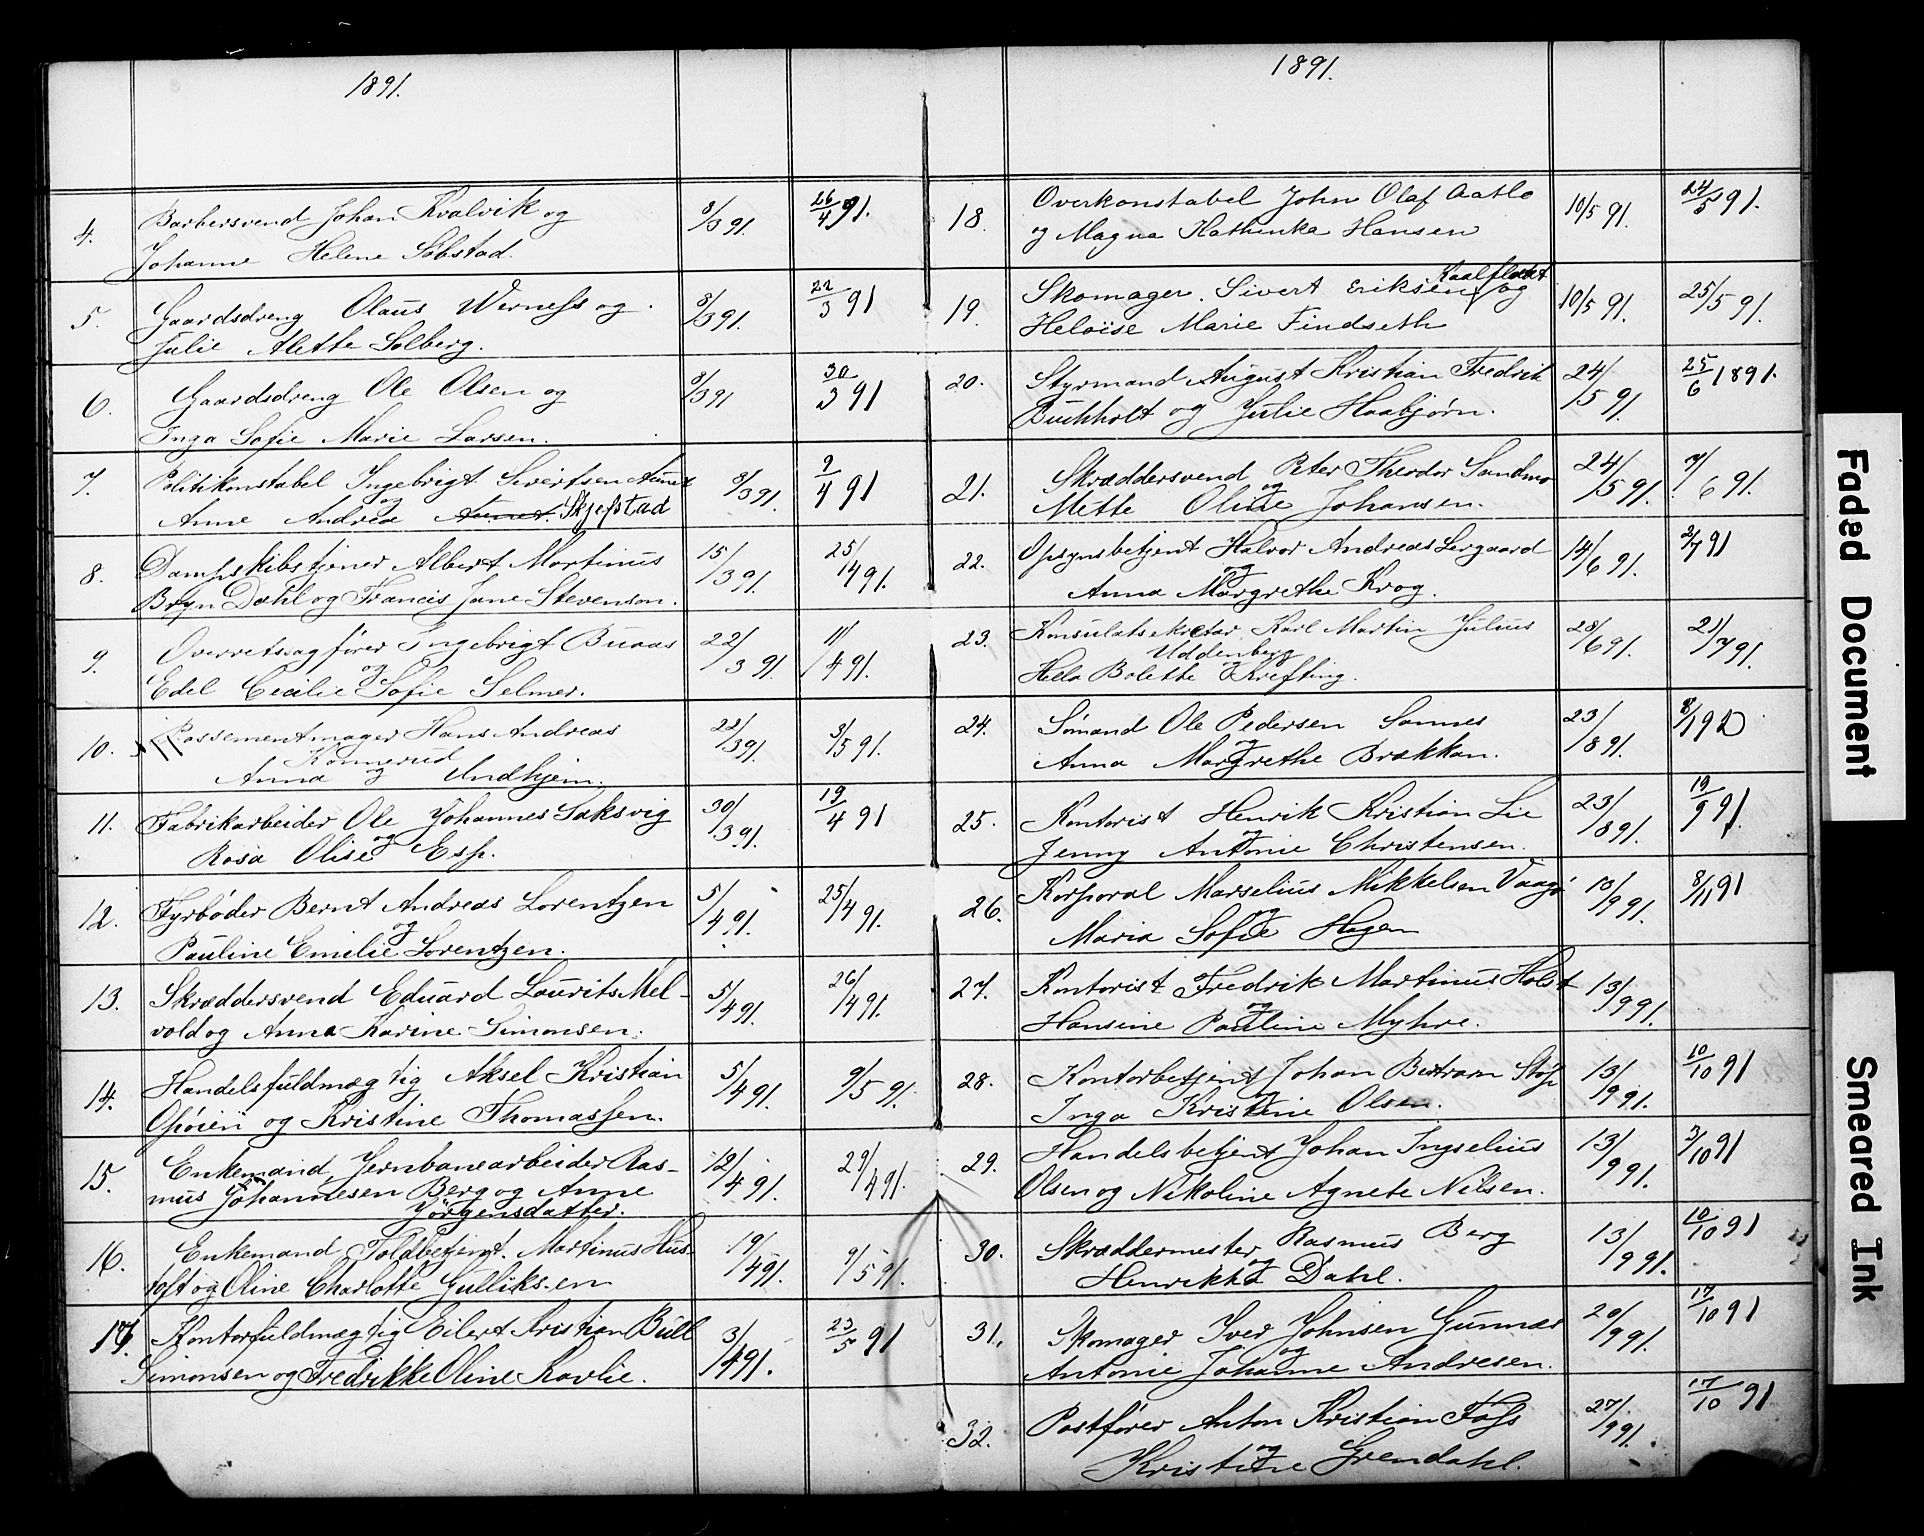 1891.
4. Barbersvend Johan Kvalvik og 8/3 91. 26/4 91.
Johanne Helene Søbstad.
5. Gaardsdreng Olaus Werness og 8/3 91. 22/3 91
Julie Alette Solberg.
6. Gaardsdreng Ole Olsen og 8/3 91 30/3 91
Inga Sofie Marie Larsen.
7. Politikonstabel Ingebrigt Sivertsen Aune 8/3 91. 9/4 91
og
Anne Andrea Aune. Skjefstad
8. Dampskibstjener Albert Martinus 15/3 91. 25/4 91.
Bryn Dahl og Francis Jane Stevenson.
9. Overretssagfører Ingebrigt Buaas 22/3 91. 11/4 91.
og
Edel Cecilie Sofie Selmer.
10. Possementmager Hans Andreas 22/3 91. 3/5 91.
Konnerud
og
Anna Indhjem.
11. Fabrikarbeider Ole Johannes Saksvig 30/3 91. 19/4 91
og
Rosa Olise Esp.
12. Fyrbøder Bernt Andreas Lorentzen 5/4 91. 25/4 91.
og
Pauline Emilie Lorentzen.
13. Skræddersvend Eduard Laurits Mel- 5/4 91. 26/4 91.
vold og Anna Karine Simonsen.
14. Handelsfuldmægtig Aksel Kristian 5/4 91. 9/5 91.
Opøien og Kristine Thomassen.
15. Enkemand, Jernbanearbeider Ras- 12/4 91. 29/4 91.
mus Johannesen Berg og Anne
Jørgensdatter.
16. Enkemand Toldbetjent Martinus Hus- 19/4 91. 9/5 91.
toft og Oline Charlotte Gulliksen
17. Kontorfuldmægtig Eilert Kristian Bull 3/4 91. 23/5 91
Simonsen og Fredrikke Oline Kavlie.
1891.
18. Overkonstabel John Olaf Aatlo 10/5 91. 24/5 91.
og Magna Kathinka Hansen
Kaalflækt
19. Skomager. Sivert Eriksen og 10/5 91. 25/5 91.
Heloise Marie Findseth
20. Styrmand August Kristian Fredrik 24/5 91. 25/6 1891.
Buchholt og Julie Haabjørn.
21. Skræddersvend Peter Theodor Sandmo 24/5 91. 7/6 91.
og
Mette Oline Johansen.
22. Opsynsbetjent Halvor Andreas Lergaard 14/6 91. 2/7 91
og
Anna Margrethe Krog.
23. Konsulatsekretær Karl Martin Julius 28/6 91. 21/7 91.
Uddenberg
og
Hela Bolette Krefting.
24. Sømand Ole Pedersen Sannes 23/8 91.
og
Anna Margrethe Brækkan.
25. Kontorist Henrik Kristian Lie 23/8 91. 19/9 91.
og
Jenny Antonie Christensen.
26. Korporal Marselius Mikkelsen Vaagø 13/9 91. 8/11 91
og
Maria Sofie Hagen
27. Kontorist Fredrik Martinus Holst 13/9 91.
og
Hansine Pauline Myhre.
28. Kontorbetjent Johan Bertram Stop 13/9 91. 10/10 91
og
Inga Kristine Olsen.
29. Handelsbetjent Johan Ingselius 13/9 91. 3/10 91
Olsen og Nikoline Agnete Nilsen.
30. Skræddermester Rasmus Berg 13/9 91. 10/10 91
og
Henrikke Dahl.
31. Skomager Iver Johnsen Gunnæs 20/9 91. 17/10 91
og
Antonie Johanne Andresen.
32. Postfører Anton Kristian Foss 27/9 91. 17/10 91
og
Kristine Grendahl.
Faded Document
Smeared Ink